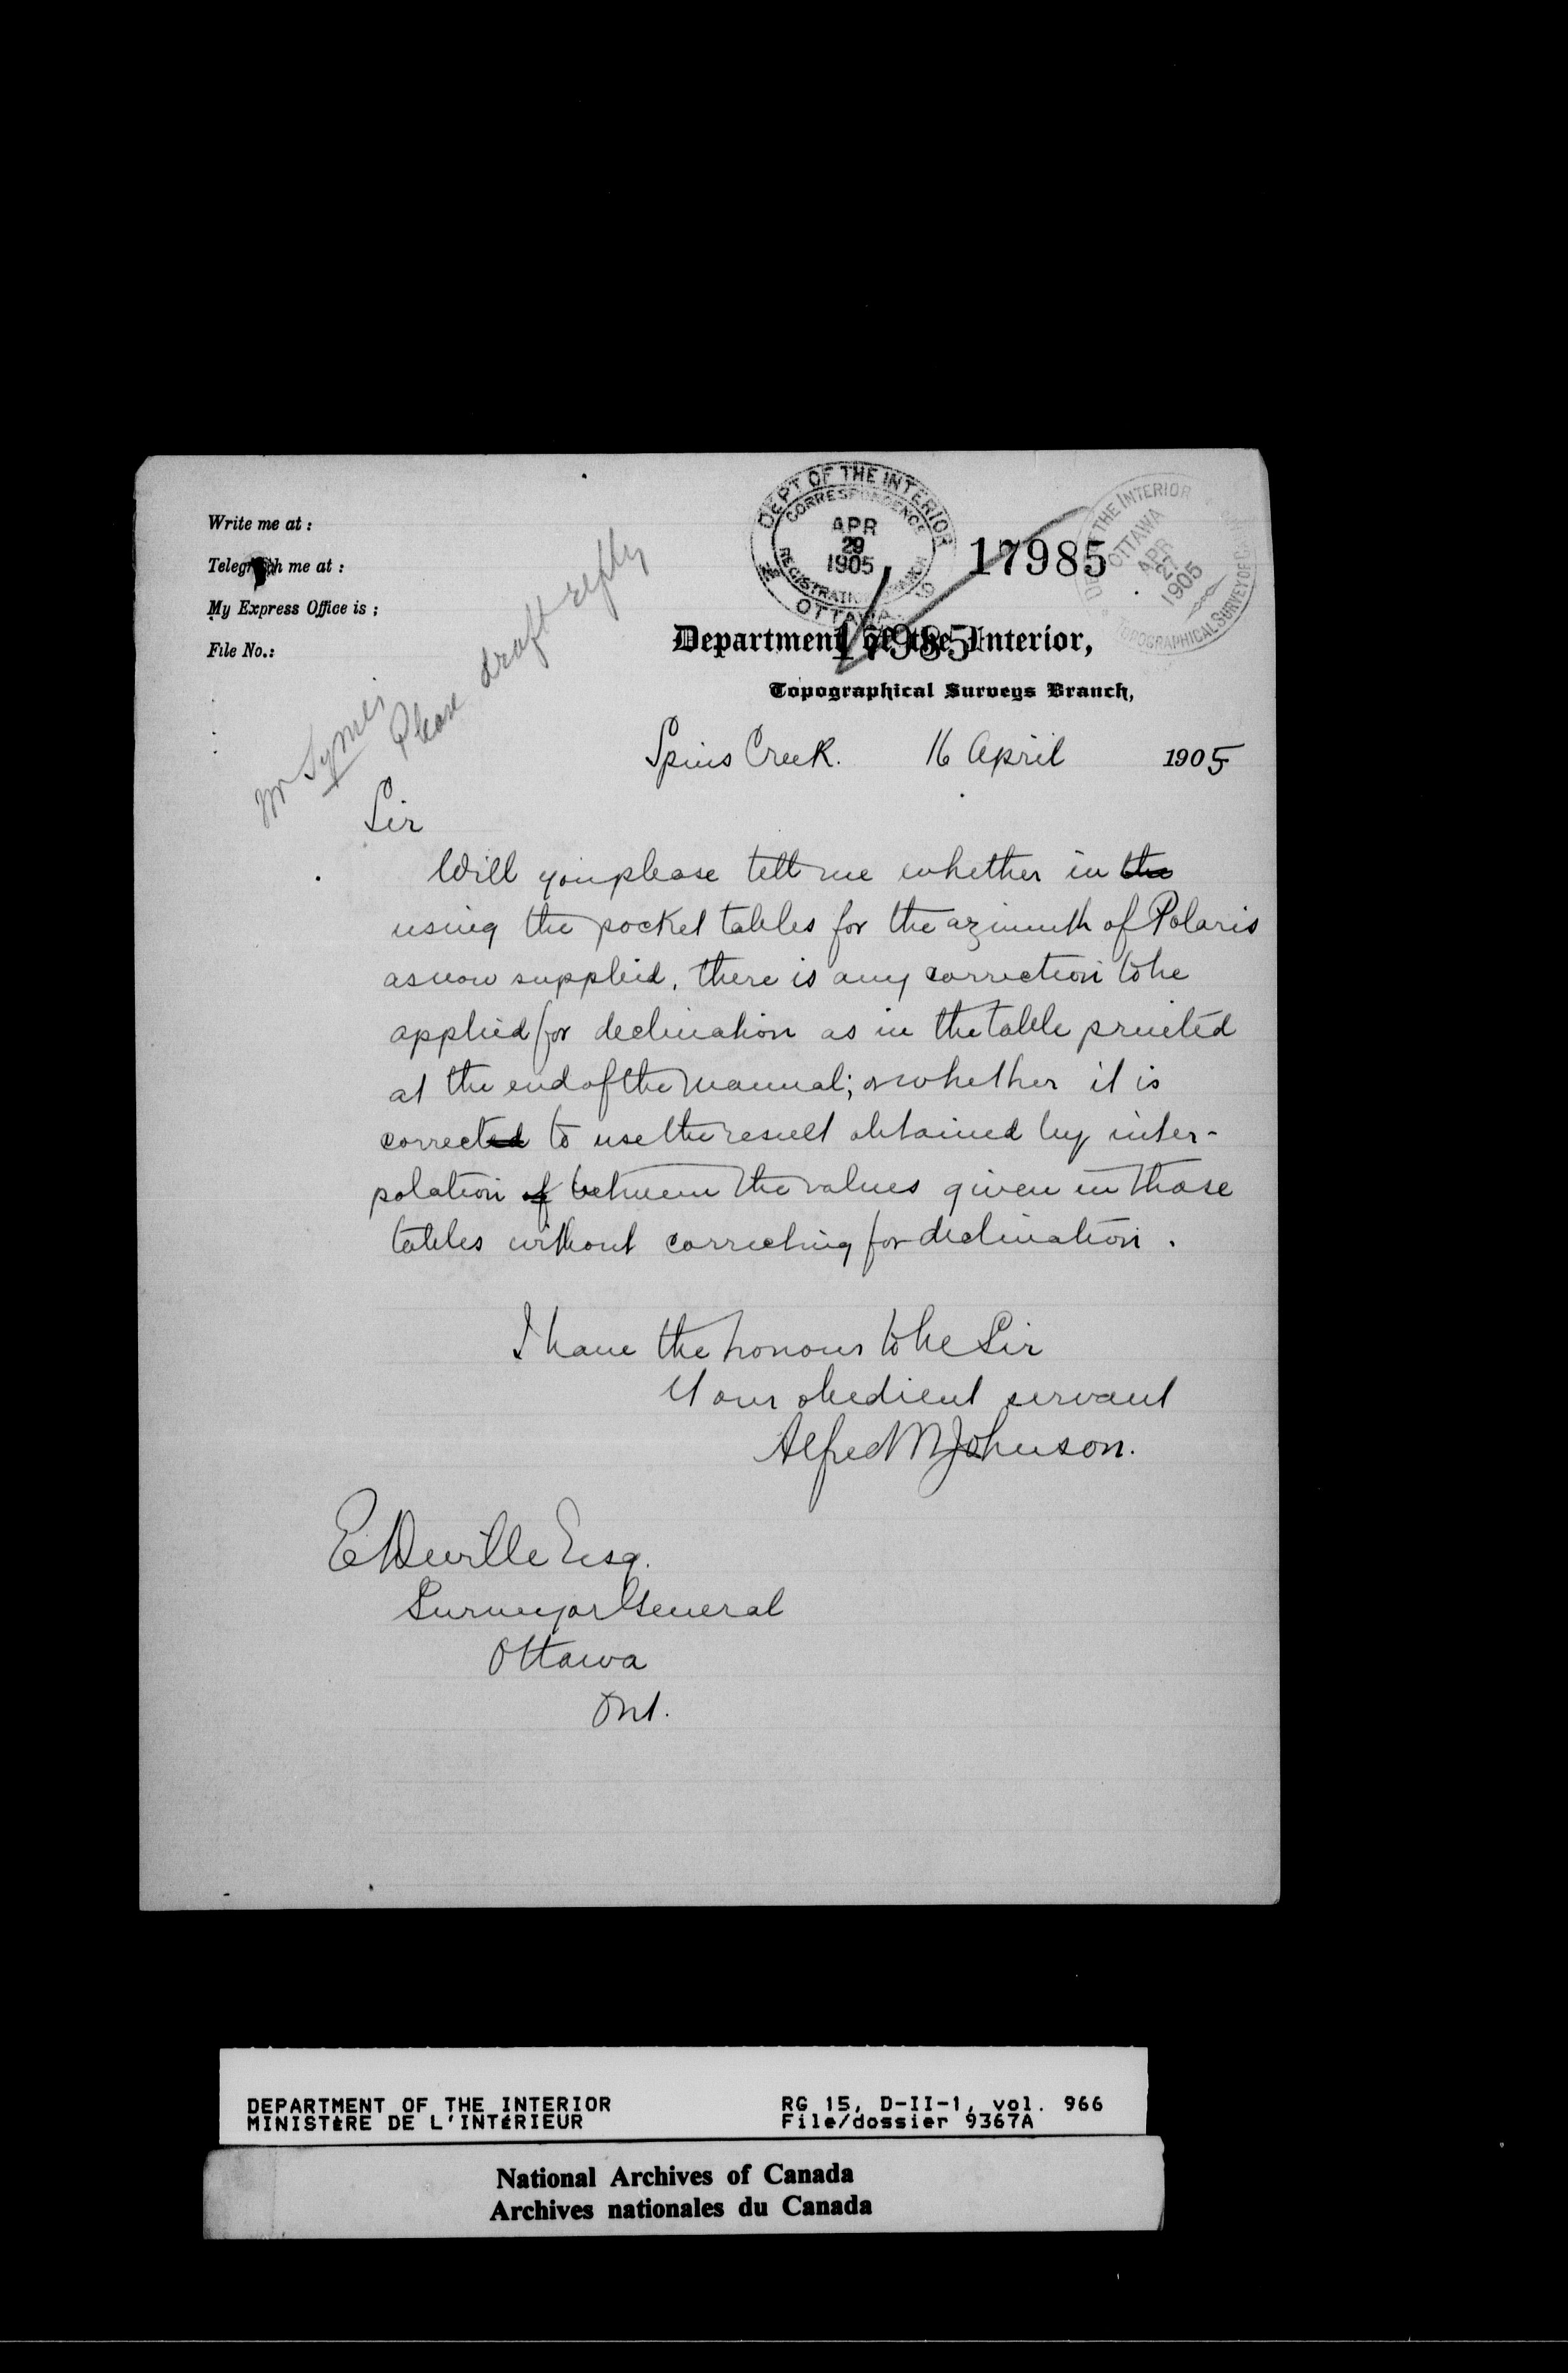 Write me at :
Telegraph me at :
My Express Office is ;
File No.:
DEPT OF THE INTERIOR
CORRESPONDENCE
APR
29
1905
REGISTRATION BRANCH
OTTAWA
17985
DEPT OF THE INTERIOR
OTTAWA
APR
27
1905
TOPOGRAPHICAL SURVEY OF CANADA
17985
Department of the Interior,
Topographical Surveys Branch,
Mr Symes
Please draft reply
Spius Creek. 16 April 1905
Sir
Will you please tell me whether in the
using the pocket tables for the azimuth of Polaris
as now supplied, there is any correction to be
applied for declination as in the table printed
at the end of the Manual; or whether it is
corrected to use the result obtained by inter-
polation of between the values given in those
tables without correcting for declination.
I have the honour to be Sir
Your obedient servant
Alfred M Johnson.
E Deville Esq.
Surveyor General
Ottawa
Ont.
DEPARTMENT OF THE INTERIOR
MINISTÈRE DE L'INTÉRIEUR
RG 15, D-II-1, vol. 966
File/dossier 9367A
National Archives of Canada
Archives nationales du Canada